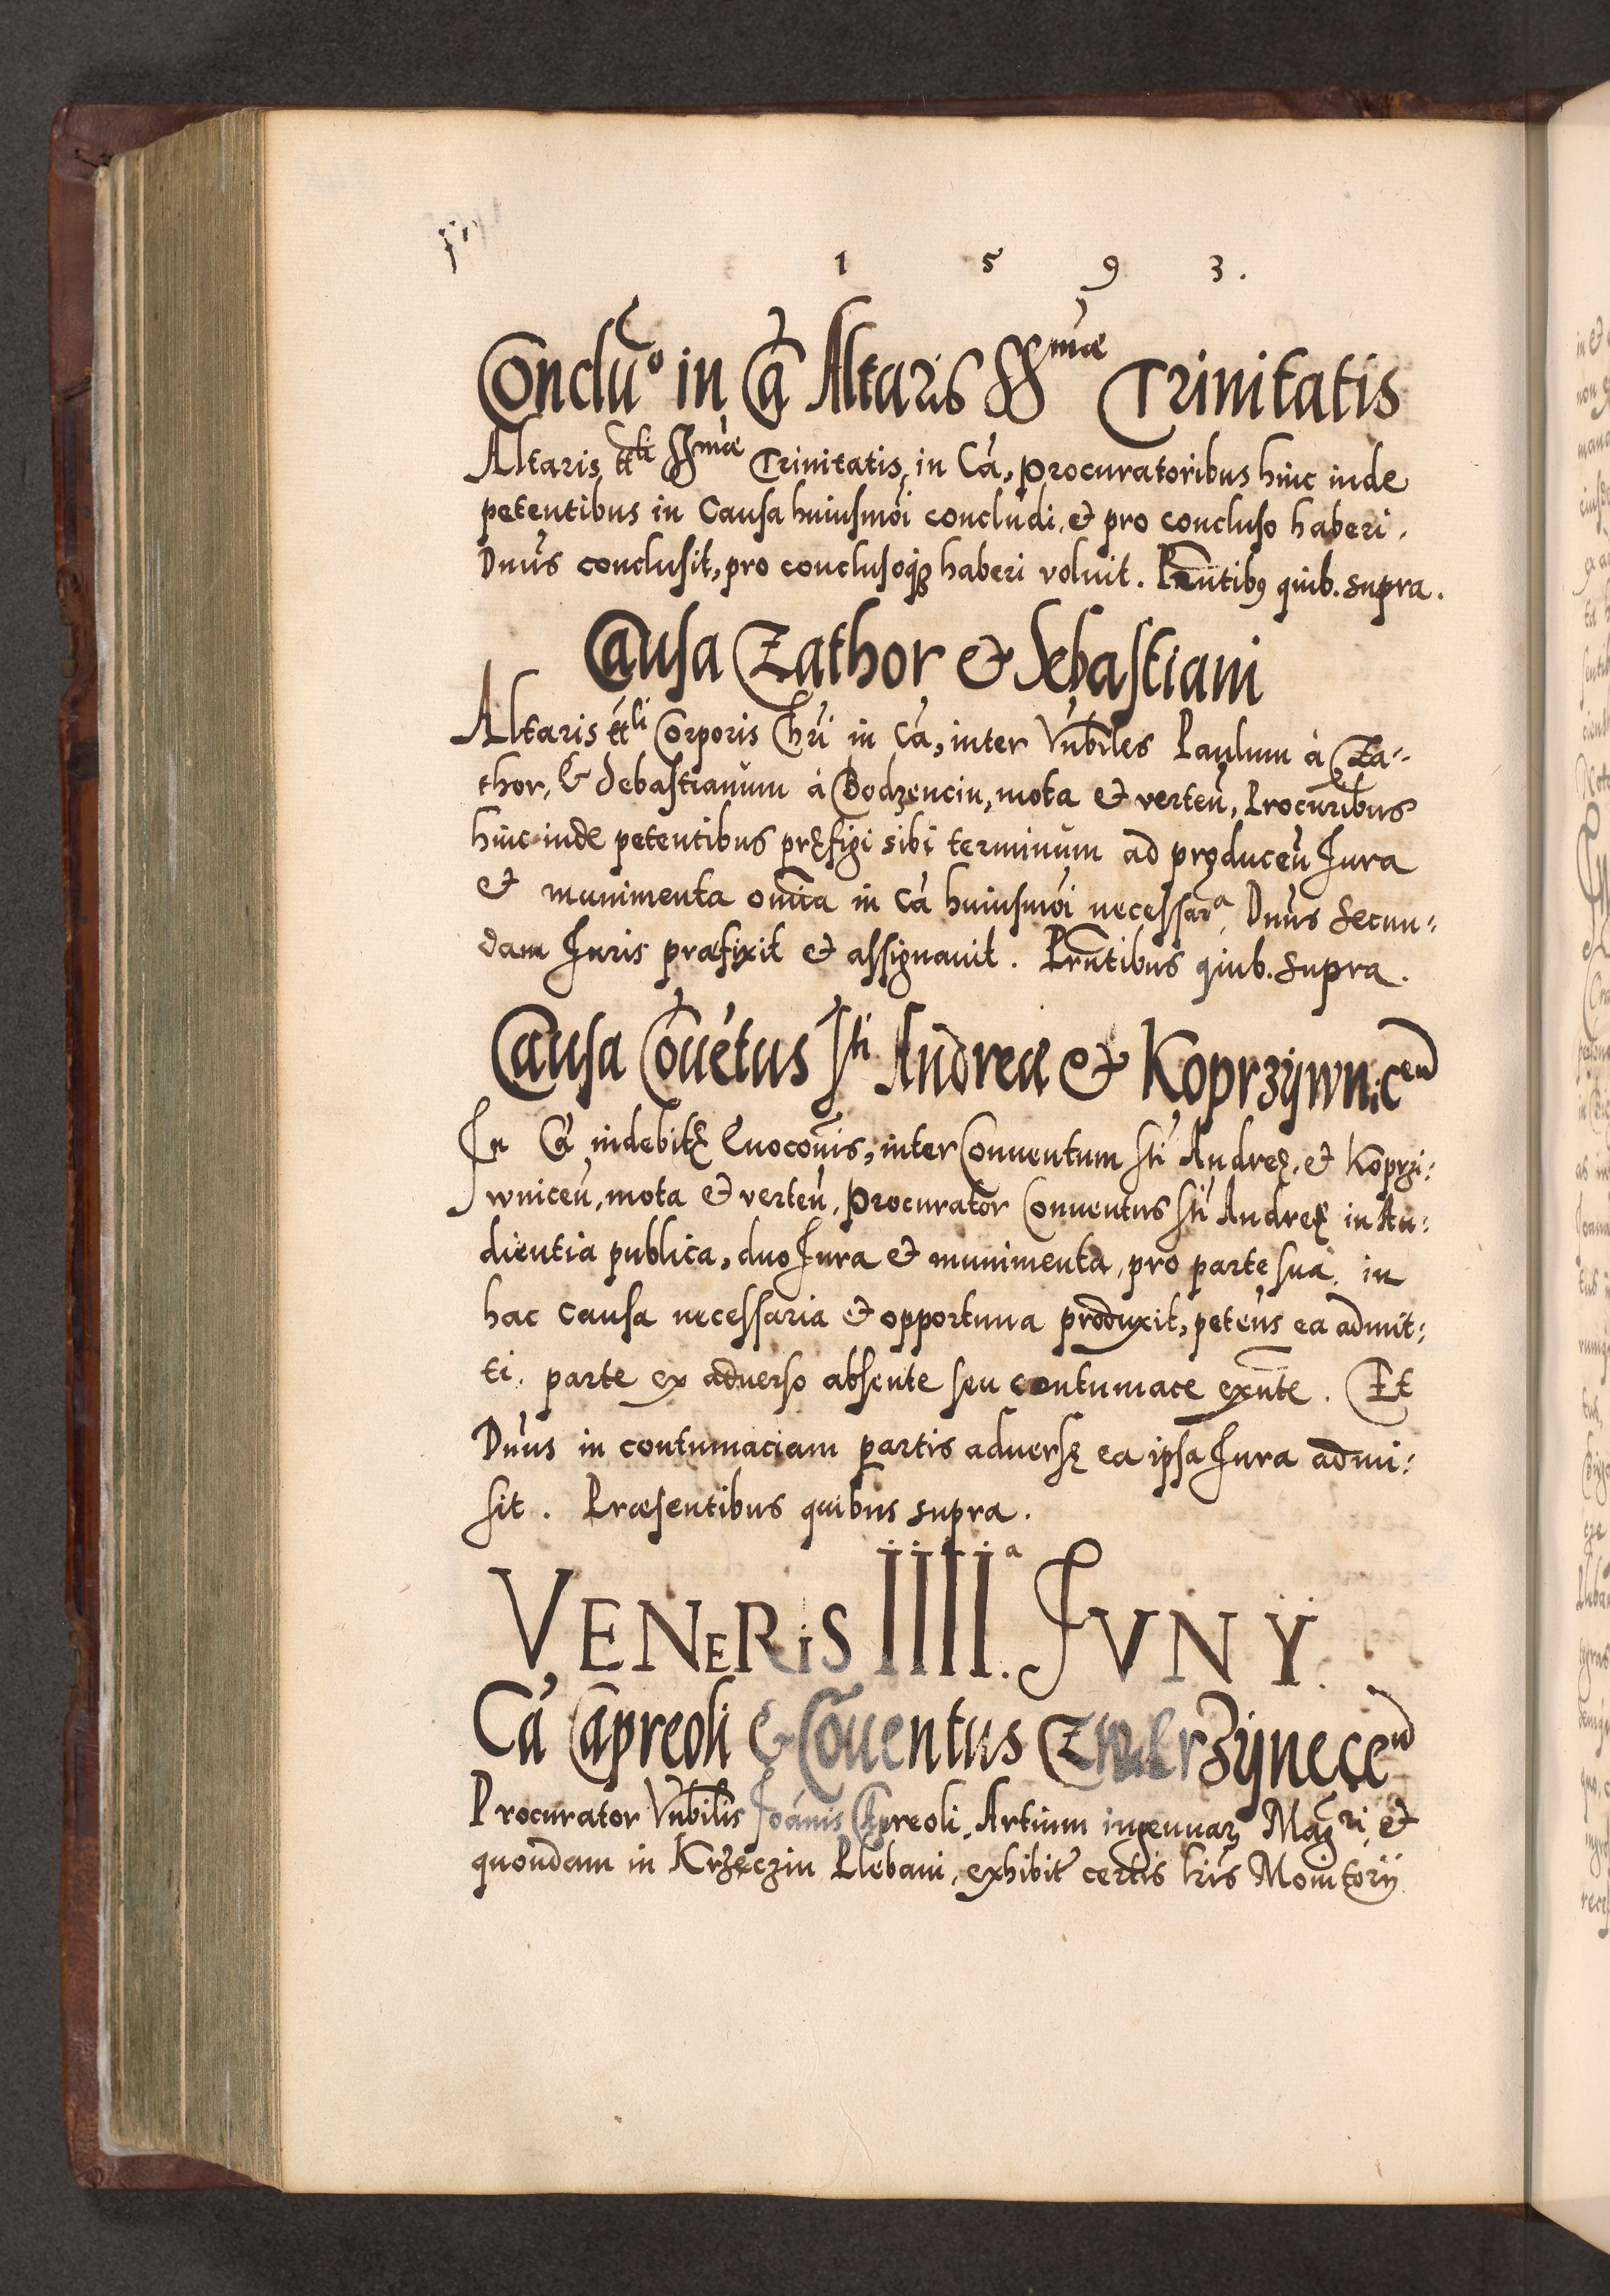 1 5 9 3.
Conclũo in Cã Altaris SSmæ Trinitatis
Altaris ttli SSmæ Trinitatis, in Cá, procuratoribus hinc inde
petentibus in Causa huiusmoi concludi, et pro concluso haberi.
Dnus conclusit, pro conclusoq; haberi voluit. Pñtibus quib. supra.
Causa Zathor & Sebastiani
Altaris ttli Corporis Chri in Cá, inter Vnbiles Paulum à Za-
thor, & Sebastianum à Bodzencin, mota et verteñ, Procuribus
hinc inde petentibus pręfigi sibi terminum ad produceñ Jura
et munimenta omia in Cá huiusmoi necessara, Dnus Secun:
dam Juris præfixit et assignauit. Prñtibus quib. supra.
Causa Cõuẽtus Sti Andreæ & Koprzÿwniceñ
In Cá indebitę Euocoñis, inter Conuentum Sti Andreę, et Koprzi:
wniceñ, mota et verteñ, Procurator Conuentus Sti Andreę in Au:
dientia publica, duo Jura et munimenta, pro parte sua, in
hac causa necessaria et opportuna produxit, peteñs ea admit:
ti, parte ex aduerso absente seu contumace exñte. Et
Dnus in contumaciam partis aduersę ea ipsa Jura admi:
sit. Præsentibus quibus supra.
VENERIS IIIIa. JVNY.
Cá Capreoli & Cõuentus Zwierzÿneceñ
Procurator Vnbilis Joãnis Capreoli, Artium ingenuarum Magri, et
quondam in Krzęczin Plebani, exhibitˢ certis lris Monitorÿ